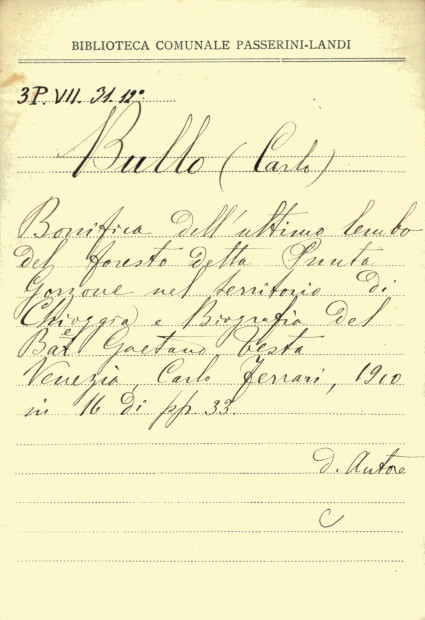 BIBLIOTECA COMUNALE PASSERINI-LANDI
3P. VII. 31. 12º
Bullo (Carlo)
Bonifica dell'ultimo lembo
del foresto detta Punta
Gorzone nel territorio di
Chioggia e Biografia del
Bar.e Gaetano Testa
Venezia, Carlo Ferrari, 1910
in 16 di pp. 33.
d. Autore
C